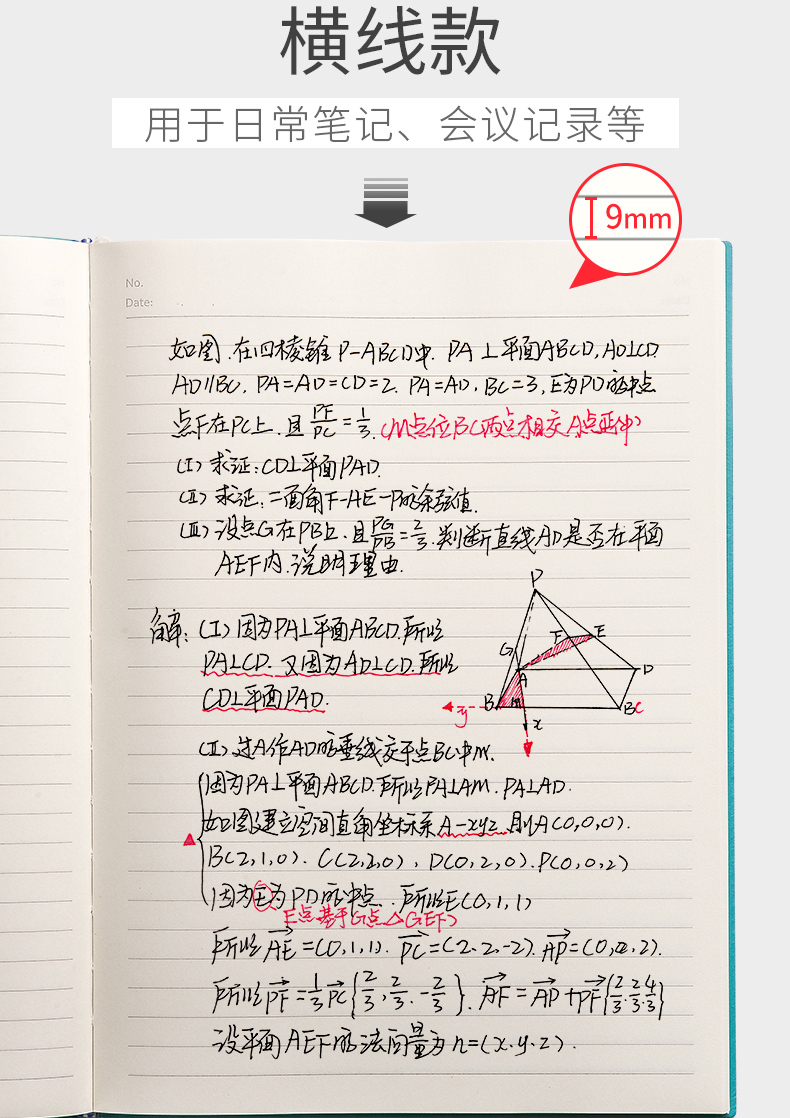 横线款
用于日常笔记、会议记录等
9mm
No.
Date:
如图.在四棱锥P-ABCD中. PA⊥平面ABCD,AD⊥CD.
AD∥BC. PA=AD=CD=2. PA=AD. BC=3,E为PD的中点
点F在PC上.且PF/PC=1/3.(M点位BC两点相交A点延伸)
(I)求证:CD⊥平面PAD.
(II)求证:二面角F-AE-P的余弦值.
(III)设点G在PB上.且PG/PB=2/3.判断直线AD是否在平面
AEF内.说明理由.
P
F
E
G
A
D
B
M
BC
y
x
解:(I)因为PA⊥平面ABCD.所以
PA⊥CD.又因为AD⊥CD.所以
CD⊥平面PAD.
(II)过A作AD的垂线交于点BC中M.
因为PA⊥平面ABCD.所以PA⊥AM.PA⊥AD.
如图建立空间直角坐标系A-xyz.则A(0,0,0).
B(2,1,0). C(2,2,0), D(0,2,0).P(0,0,2)
因为E为PD的中点.所以E(0,1,1)
E点基于G点△GEF)
所以AE=(0,1,1). PC=(2,2,-2). AP=(0,2,2).
所以PF=1/3PC{2/3,2/3.-2/3}. AF=AP+PF{2/3.2/3.4/3}
设平面AEF的法向量为n=(x.y.z).